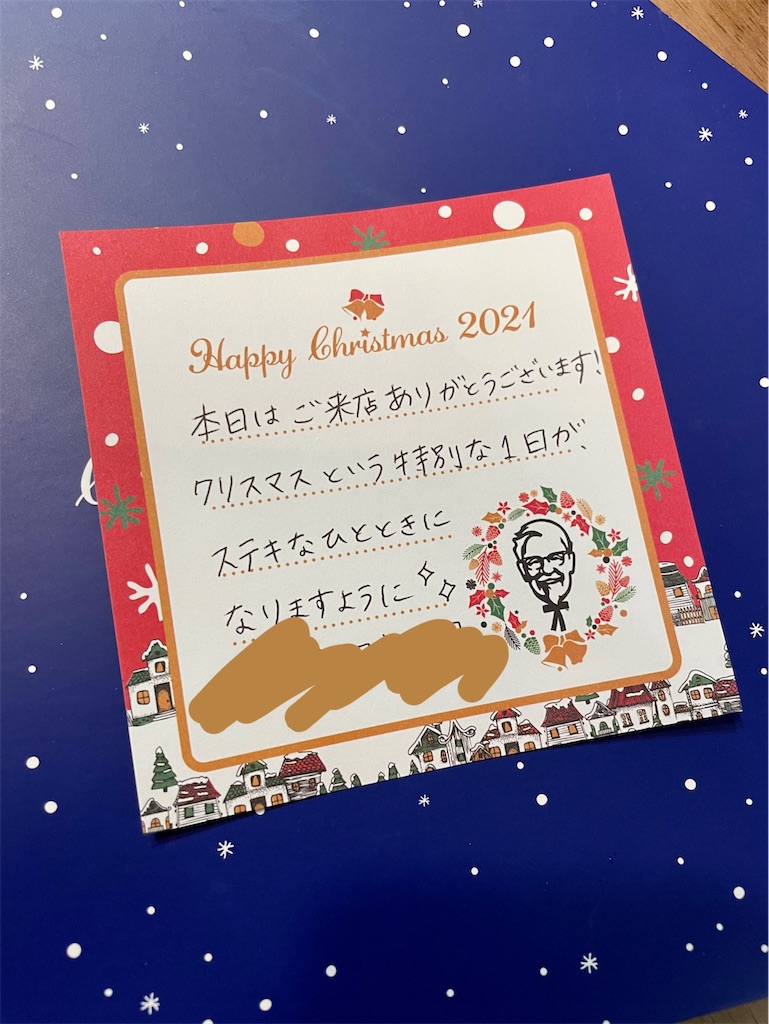 Happy Christmas 2021
本日は ご来店ありがとうございます!
クリスマス という 特別な1日が、
ステキなひとときに
なりますように